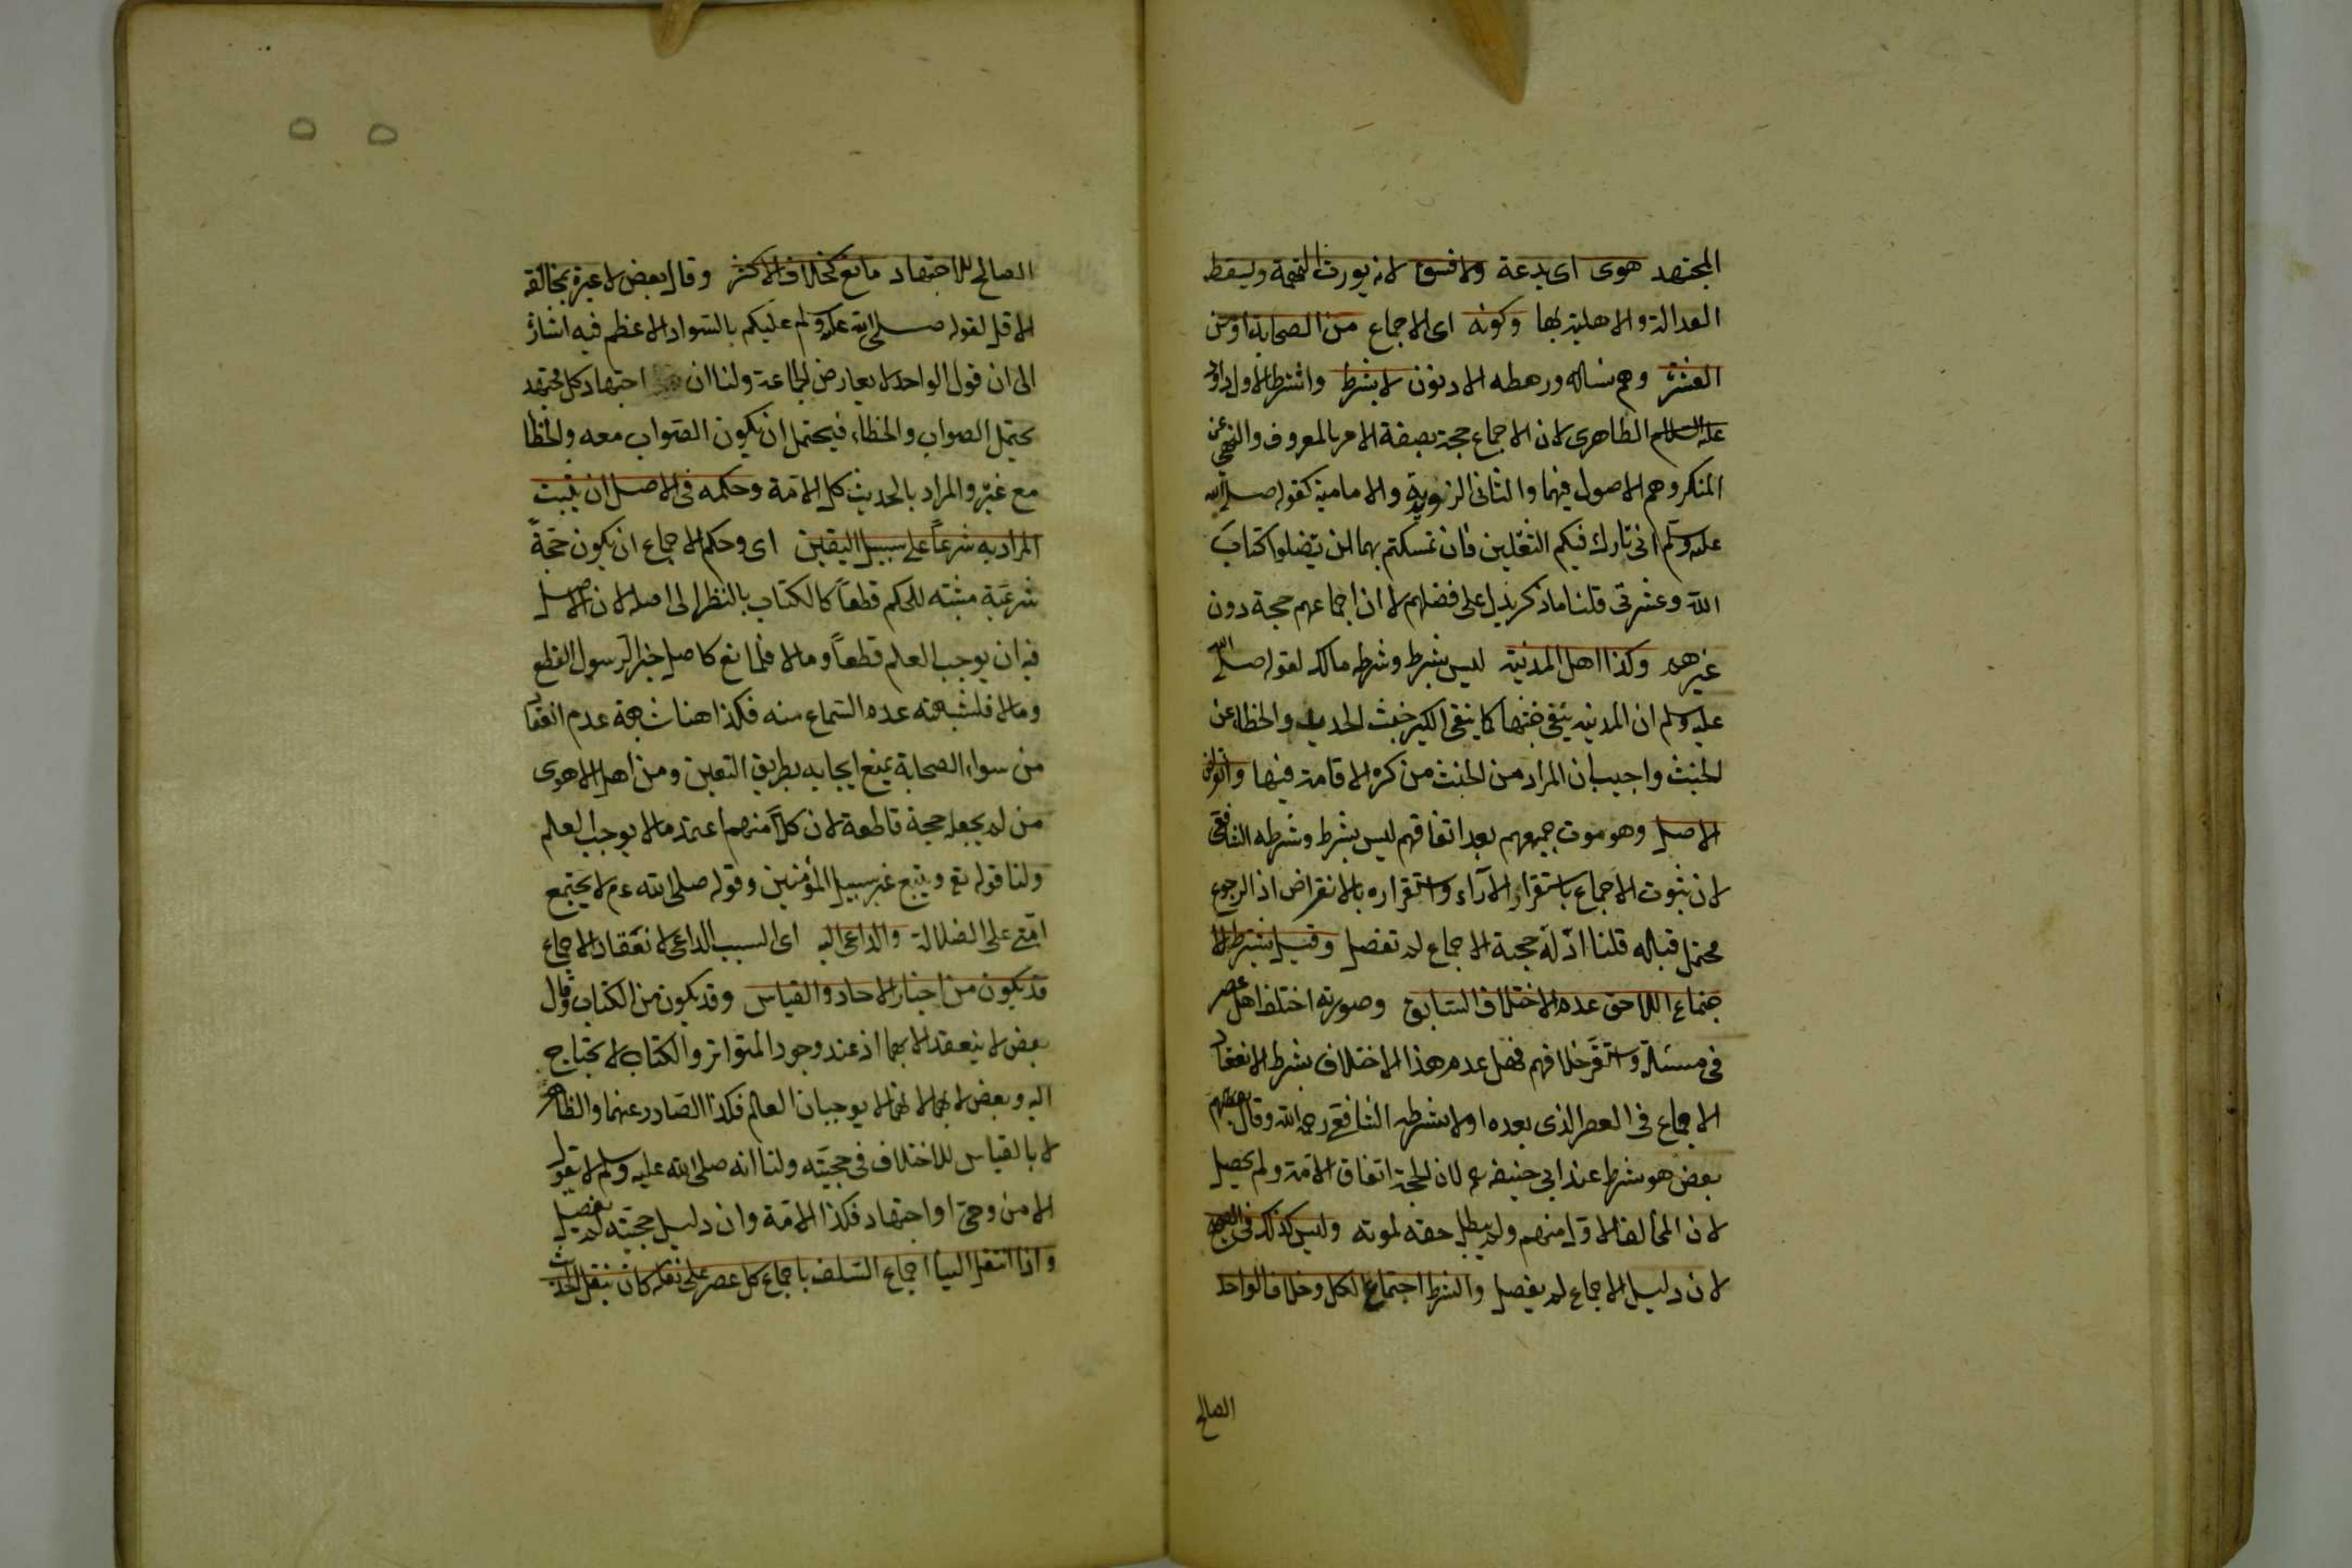 المجتهد هوى اى بدعة ولا فسق لانه يورث التهمة ويسقط
العدالة والاهلية بها وكونه اى الاجماع من الصحابة او من
العترة وهم نساله ورهطه الادنون لا يشترط واشترط الاول داود
عليه السلام الظاهرى لان الاجماع حجة بصفة الامر بالمعروف والنهى عن
المنكر وهم الاصول فيهما والثانى الزيدية والامامية كقوله صلى الله
عليه وسلم انى تارك فيكم الثقلين فان تمسكتم بهما لن تضلوا كتاب
الله وعترتى قلنا ما ذكر يدل على فضلهم لا ان اجماعهم حجة دون
غيرهم وكذا اهل المدينة ليس بشرط وشرطه مالك لقوله صلى الله
عليه وسلم ان المدينة ينفى خبثها كما ينفى الكير خبث الحديد والخطاء من
الخبث واجيب بان المراد من الخبث من كره الاقامة فيها وانقراض
الاصل وهو موت جميعهم بعد اتفاقهم ليس بشرط وشرطه الشافعى
لان ثبوت الاجماع باستقرار الآراء واستقراره بالانقراض اذ الرجوع
محتمل قباله قلنا ادلة حجية الاجماع لم تفصل وقيل يشترط للا
جتماع اللاحق عدم الاختلاف السابق وصورته اختلف اهل عصر
فى مسئلة واستقر خلافهم فهل عدم هذا الاختلاف بشرط لانعقاد
الاجماع فى العصر الذى بعده اولا بشرطه الشافعى رحمه الله وقال بعضهم
بعض هو شرط عند ابى حنيفة لان الحجة اتفاق الامة ولم يحصل
لان المخالف الاول منهم ولم يبطل حقه لموته وليس كذلك فى الصحيح
لان دليل الاجماع لم يفصل والشرط اجتماع الكل وخلاف الواحد
الصالح
الصالح للاجتهاد مانع كخلاف الاكثر وقال بعض لا عبرة بمخالفة
الاقل لقوله صلى الله عليه وسلم عليكم بالسواد الاعظم فيه اشارة
الى ان قول الواحد لا يعارض الجماعة ولنا ان اجتهاد كل مجتهد
يحتمل الصواب والخطاء فيحتمل ان يكون الصواب معه والخطا
مع غيره والمراد بالحديث كل الامة وحكمه فى الاصل ان يثبت
المراد به شرعاً على سبيل اليقين اى وحكم الاجماع ان يكون حجة
شرعية مثبتة للحكم قطعاً كالكتاب بالنظر الى اصله لان الاصل
فيه ان يوجب العلم قطعاً وما لا فلمانع كاصل خبر الرسول القطع
وما لا فلشبهته عدم السماع منه فكذا هنا شبهة عدم انعقاد
من سواء الصحابة يمنع ايجابه بطريق التعين ومن اهل الاهوى
من لم يجعله حجة قاطعة لان كلاً منهم اعتمد ما لا يوجب العلم
ولنا قوله تع ويتبع غير سبيل المؤمنين وقوله صلى الله عم لا يجتمع
امتى على الضلالة والداعى اليه اى السبب الداعى لانعقاد الاجماع
قد يكون من اخبار الاحاد والقياس وقد يكون من الكتاب وقال
بعض لا ينعقد الا بهما اذ عند وجود المتواتر والكتاب لا يحتاج
اليه وبعض لا بهما لانهما لا يوجبان العلم فكذا الصادر عنهما والظاهر
لا بالقياس للاختلاف فى حجيته ولنا انه صلى الله عليه وسلم لا يقول
الا من وحى او اجتهاد فكذا الامة وان دليل حجيته لم يفصل
واذا انتقل الينا اجماع السلف باجماع كل عصر على نقله كان كنقل الحديث